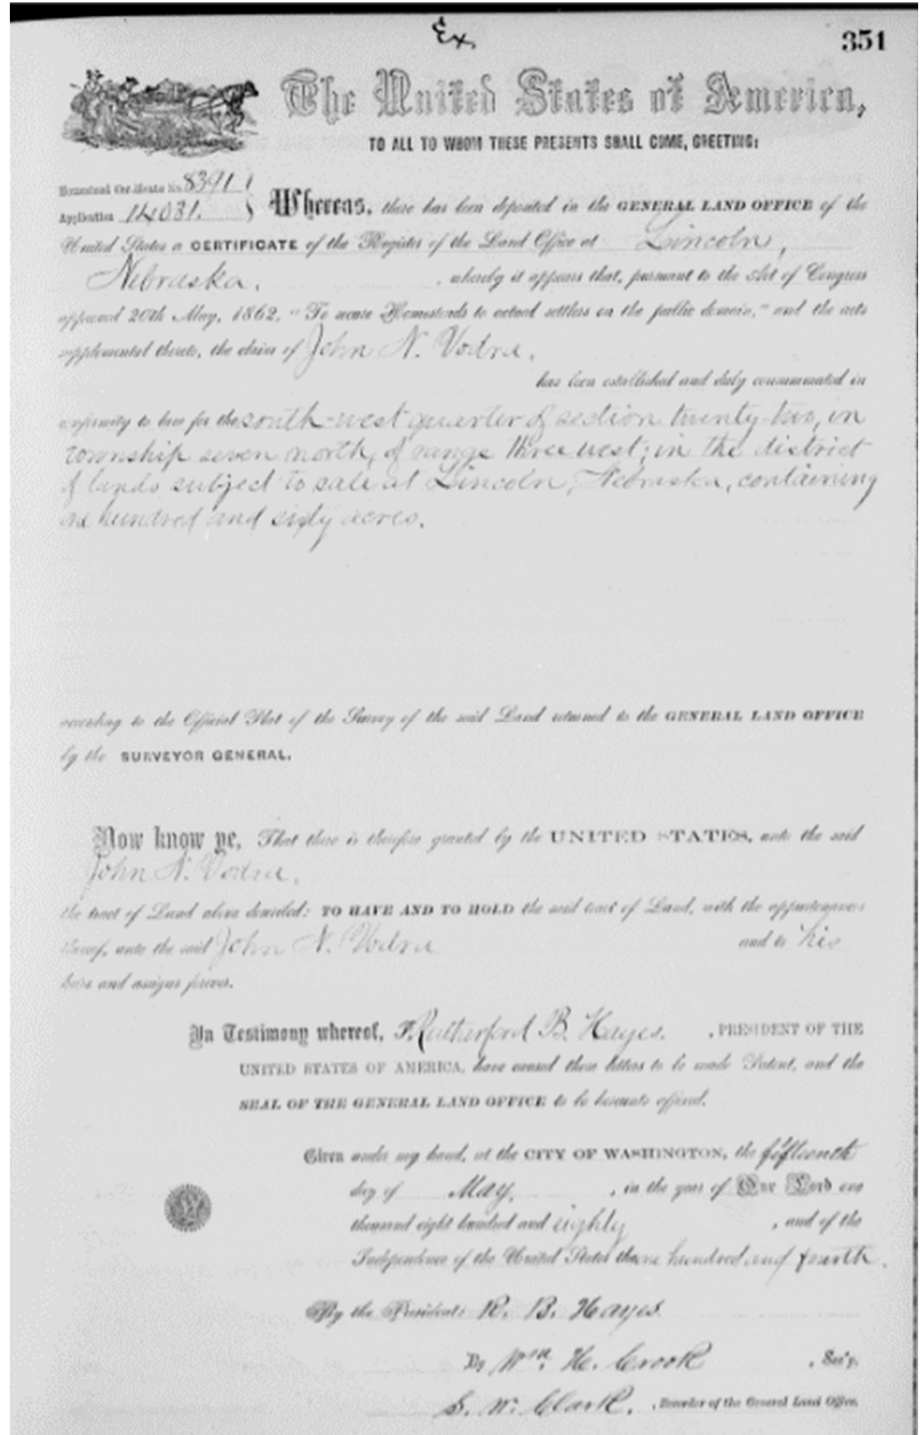 Ex.
351
The United States of America,
TO ALL TO WHOM THESE PRESENTS SHALL COME, GREETING:
Homestead Certificate No. 8391
Application 14031.
Whereas, there has been deposited in the GENERAL LAND OFFICE of the
United States a CERTIFICATE of the Register of the Land Office at Lincoln,
Nebraska. , whereby it appears that, pursuant to the Act of Congress
approved 20th May, 1862, "To secure Homesteads to actual settlers on the public domain," and the acts
supplemental thereto, the claim of John N. Vodra.
has been established and duly consummated in
conformity to law for the south-west quarter of section twenty-two, in
township seven north, of range three west; in the district
of lands subject to sale at Lincoln, Nebraska, containing
one hundred and sixty acres.
according to the Official Plat of the Survey of the said Land returned to the GENERAL LAND OFFICE
by the SURVEYOR GENERAL.
Now know ye, That there is therefore granted by the UNITED STATES, unto the said
John N. Vodra.
the tract of Land above described: TO HAVE AND TO HOLD the said tract of Land, with the appurtenances
thereof, unto the said John N. Vodra and to his
heirs and assigns forever.
In Testimony whereof, I, Rutherford B. Hayes. , PRESIDENT OF THE
UNITED STATES OF AMERICA, have caused these letters to be made Patent, and the
SEAL OF THE GENERAL LAND OFFICE to be hereunto affixed.
Given under my hand, at the CITY OF WASHINGTON, the fifteenth
day of May, , in the year of Our Lord one
thousand eight hundred and eighty , and of the
Independence of the United States the one hundred and fourth.
By the President: R. B. Hayes
By Wm. H. Crook , Sec'y.
S. W. Clark. , Recorder of the General Land Office.